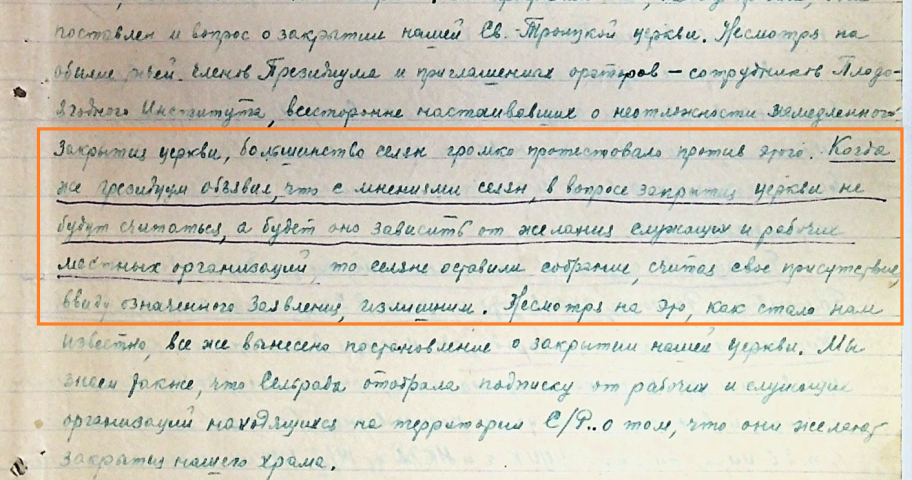 поставлен и вопрос о закрытии нашей Св. Троицкой церкви. Несмотря на
обилие речей членов Президиума и приглашенных ораторов – сотрудников Плодо-
Ягодного Института, всесторонне настаивавших о неотложности немедленного
закрытия церкви, большинство селян громко протестовало против этого. Когда
же президиум объявил, что с мнениями селян, в вопросе закрытия церкви не
будут считаться, а будет оно зависить от желания служащих и рабочих
местных организаций, то селяне оставили собрание, считая свое присутствие,
ввиду означенного заявления, излишним. Несмотря на это, как стало нам
известно, все же вынесено постановление о закрытии нашей церкви. Мы
знаем также, что Сельрада отобрала подписку от рабочих и служащих
организаций находящихся на территории С/Р.. о том, что они желают
закрытия нашего храма.